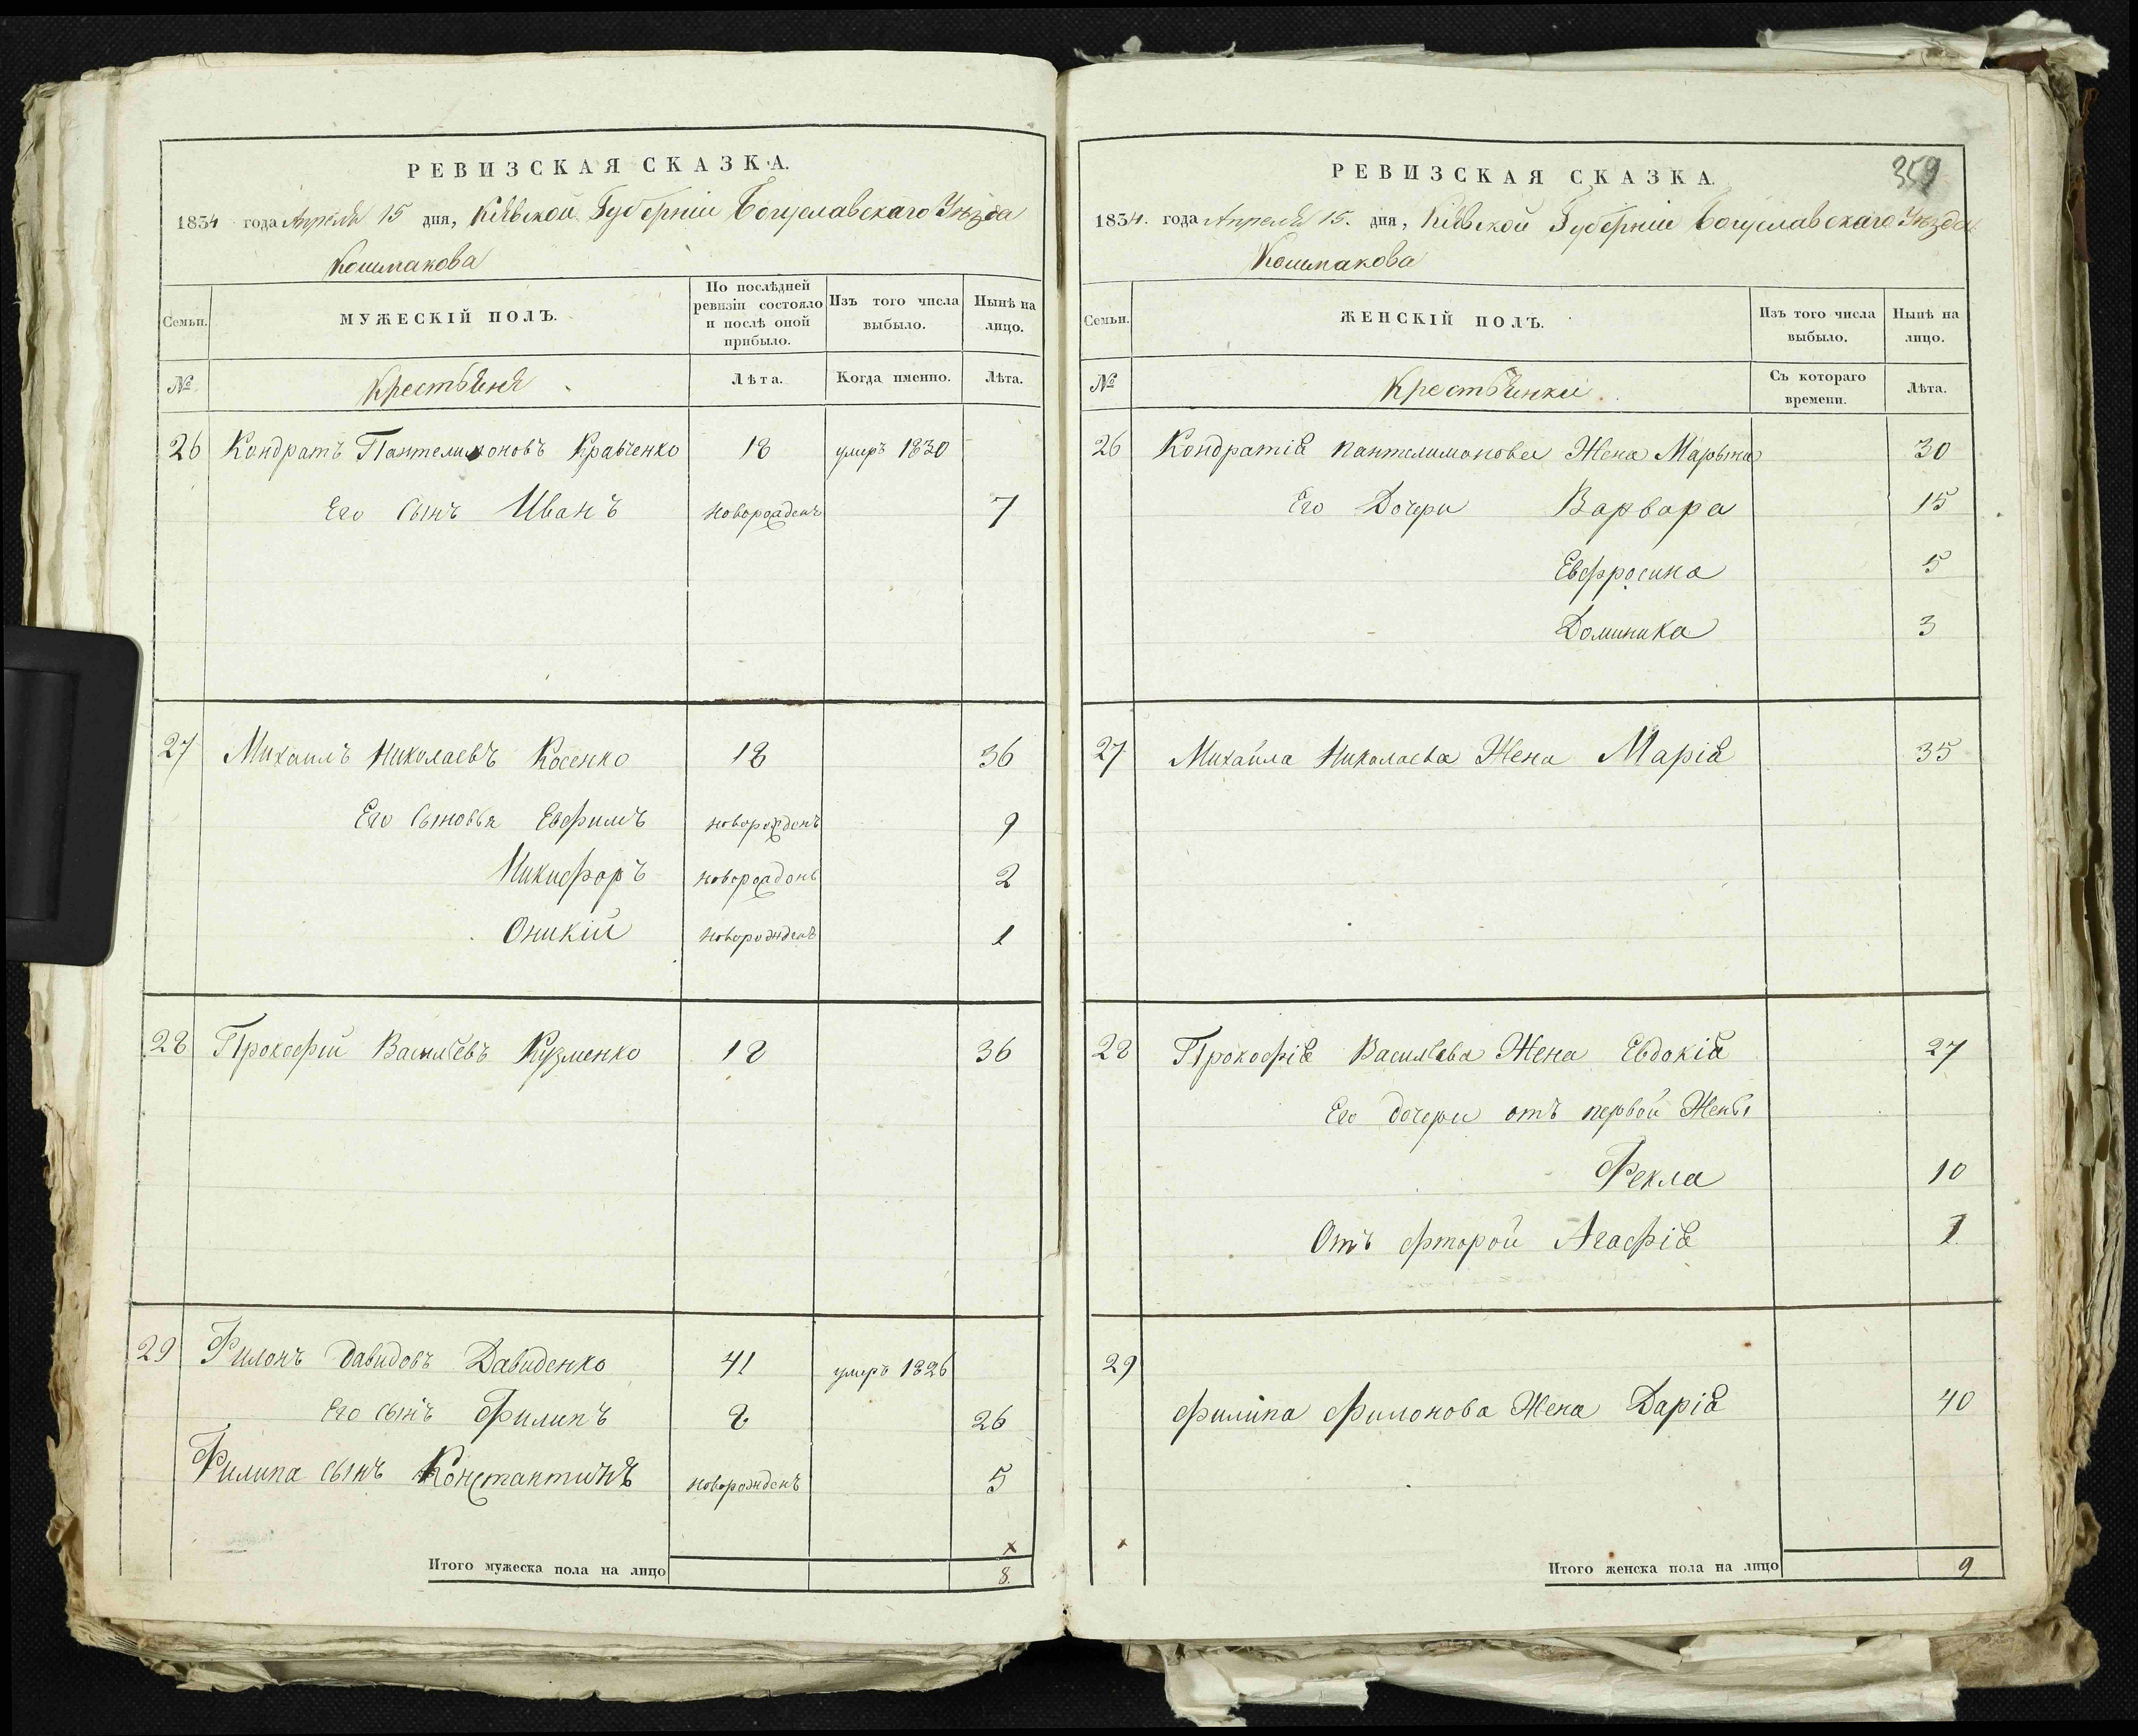 РЕВИЗСКАЯ СКАЗКА.
1834 года Апреля 15 дня, Кіевской Губерніи Богуславскаго Уѣзда
Кошмакова
Семьи.
МУЖЕСКІЙ ПОЛЪ.
По послѣдней ревизіи состояло и послѣ оной прибыло.
Изъ того числа выбыло.
Нынѣ на лицо.
№
Крестьяня
Лѣта.
Когда именно.
Лѣта.
26 Кондратъ Пантелимоновъ Кравченко 18 умеръ 1830
Его Сынъ Иванъ новорожденъ 7
27 Михаилъ Николаевъ Косенко 18 36
Его Сыновья Евфимъ новорожденъ 9
Никифоръ новорожденъ 2
Оникій новорожденъ 1
28 Прокофій Васильевъ Кузменко 18 36
29 Филонъ Давидовъ Давиденко 41 умеръ 1826
Его сынъ Филипъ 8 26
Филипа сынъ Константинъ новорожденъ 5
Итого мужеска пола на лицо 8.
359
РЕВИЗСКАЯ СКАЗКА.
1834. года Апреля 15. дня, Кіевской Губерніи Богуславскаго Уѣзда
Кошмакова
Семьи.
ЖЕНСКІЙ ПОЛЪ.
Изъ того числа выбыло.
Нынѣ на лицо.
№
Крестьянки.
Съ котораго времени.
Лѣта.
26 Кондратія Пантелимонова Жена Марьна 30
Его Дочери Варвара 15
Евфросина 5
Доминика 3
27 Михайла Николаева Жена Марія 35
28 Прокофія Васильева Жена Евдокія 27
Его дочери отъ первой Жены
Фекла 10
Отъ фторой Агафія 1
29
Филипа Филонова Жена Дарія 40
Итого женска пола на лицо 9